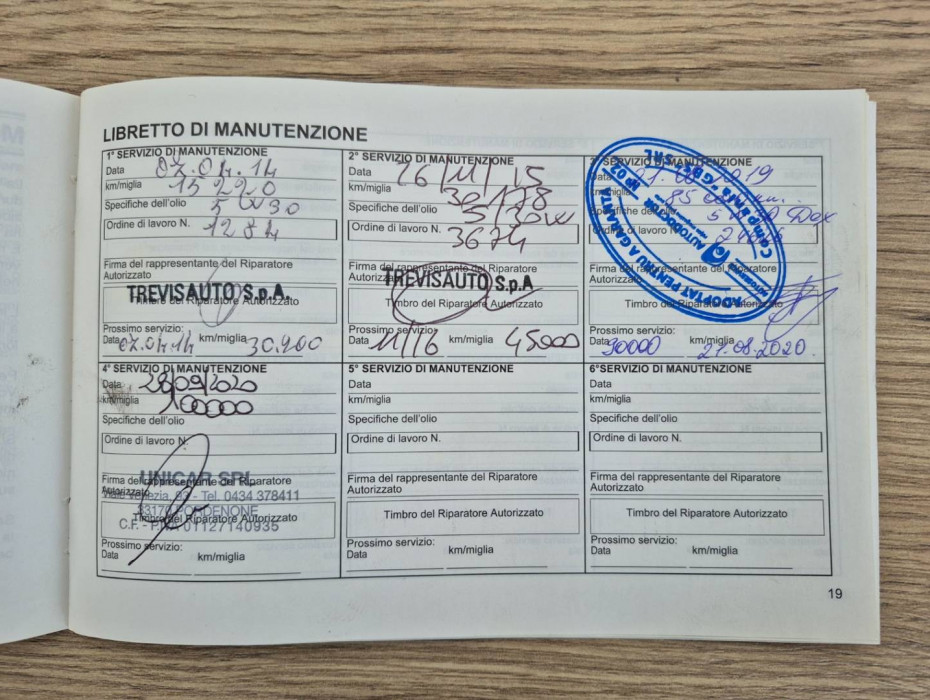 LIBRETTO DI MANUTENZIONE
1° SERVIZIO DI MANUTENZIONE
Data 07.04.14
km/miglia 15220
Specifiche dell'olio 5W30
Ordine di lavoro N. 1284
Firma del rappresentante del Riparatore
Autorizzato
TREVISAUTO S.p.A
Timbro del Riparatore Autorizzato
Prossimo servizio:
Data 07.04.14 km/miglia 30.200
2° SERVIZIO DI MANUTENZIONE
Data 26/11/15
km/miglia 30178
Specifiche dell'olio 5/30W
Ordine di lavoro N. 3674
Firma del rappresentante del Riparatore
Autorizzato
TREVISAUTO S.p.A
Timbro del Riparatore Autorizzato
Prossimo servizio:
Data 11/16 km/miglia 45000
3° SERVIZIO DI MANUTENZIONE
Data 2019
km/miglia 85
Specifiche dell'olio
Ordine di lavoro N.
ADOPTAT PENTRU A GARANTA
AUTODOCTOR
SRL
Firma del rappresentante del Riparatore
Autorizzato
Timbro del Riparatore Autorizzato
Prossimo servizio:
Data 90000 km/miglia 21.08.2020.
4° SERVIZIO DI MANUTENZIONE
Data 28/09/2020
km/miglia 100000
Specifiche dell'olio
Ordine di lavoro N.
UNICAR SRL
Firma del rappresentante del Riparatore
Autorizzato
Viale Venezia, 93 - Tel. 0434 378411
33170 PORDENONE
Timbro del Riparatore Autorizzato
C.F. - P.IVA 01127140935
Prossimo servizio:
Data km/miglia
5° SERVIZIO DI MANUTENZIONE
Data
km/miglia
Specifiche dell'olio
Ordine di lavoro N.
Firma del rappresentante del Riparatore
Autorizzato
Timbro del Riparatore Autorizzato
Prossimo servizio:
Data km/miglia
6°SERVIZIO DI MANUTENZIONE
Data
km/miglia
Specifiche dell'olio
Ordine di lavoro N.
Firma del rappresentante del Riparatore
Autorizzato
Timbro del Riparatore Autorizzato
Prossimo servizio:
Data km/miglia
19